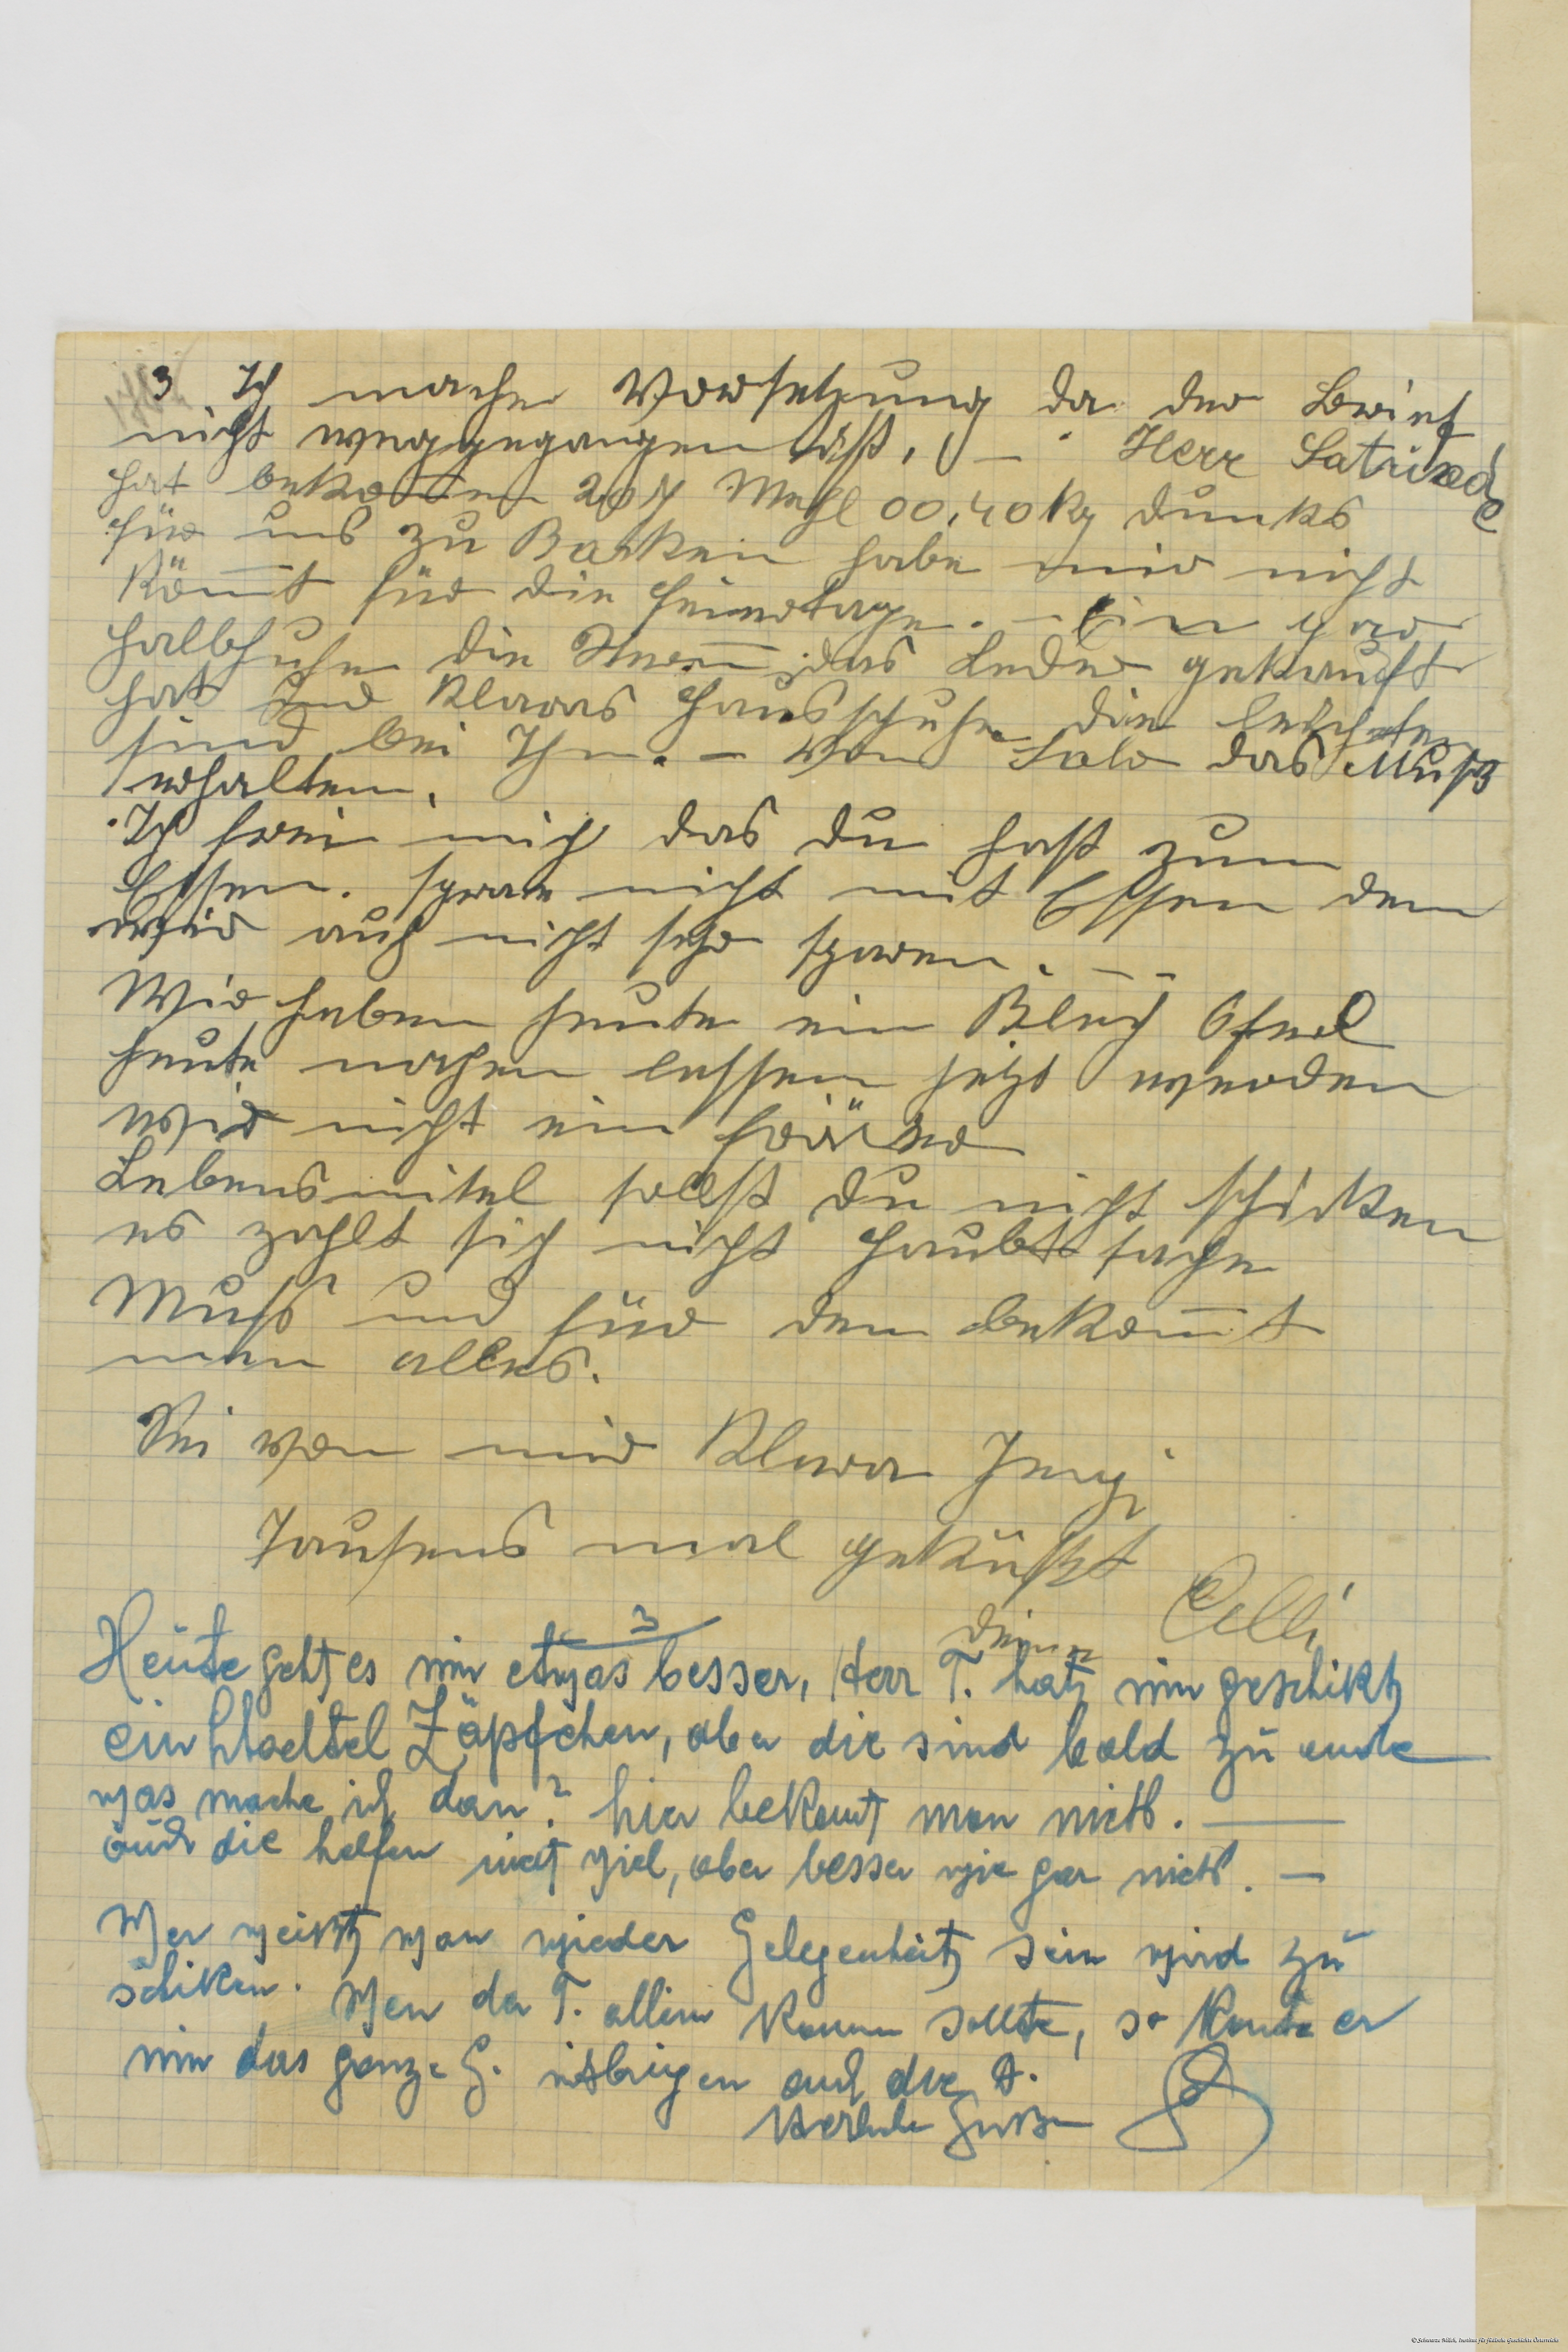 3 Ich mache Vorsetzung da der Brief
nicht weggegangen ist. – Herr
hat bekommen Mehl 00, 40 kg dunks
für uns zu Backen habe mir nicht
kömmt für die Feiertage. – Ein par
Halbschuhe die das Leder gekauft
hat und Klaras Hausschuhe die
sind bei Ihm. – Von Salo das Muß
erhalten.
Ich frei mich das du hast zum
Essen. spare nicht mit Essen den
wir auch nicht sehr sparen. – –
Wir haben heute ein Blech Oferl
heute machen lassen jetzt werden
wir nicht ein
Lebensmitel sollst du nicht schicken
es zahlt sich nicht Haubtsache
Muß und für dem bekommt
man alles.
Sei von mir Klara
Tausens mal geküßt
deine Celli
Heute geht es mir etwas besser, Herr T. hat mir geschikt
ein Zäpfchen, aber die sind bald zu ende
was mache ich dan? hier bekomt man nichts. —
auch die helfen nicht viel, aber besser wie gar nichts. –
Wer weißt wan wieder Gelegenheit sein wird zu
schiken. Wen der T. allein kommen sollte, so konte er
mir das ganze G. mitbringen auch die A.
Herzliche Grüße